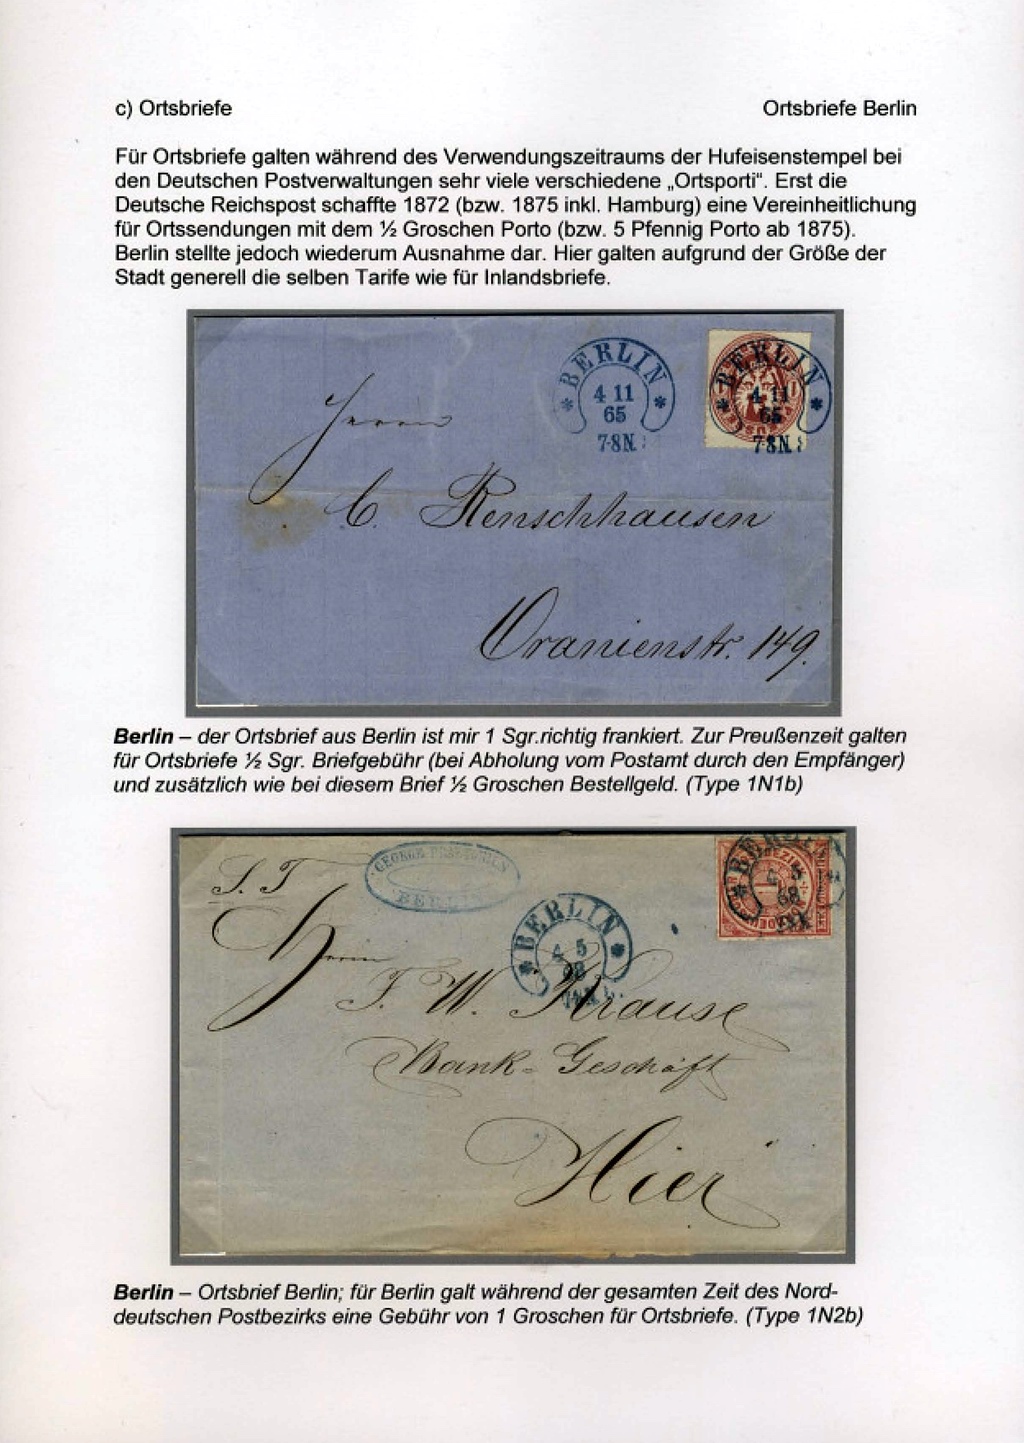 c) Ortsbriefe
Ortsbriefe Berlin
Für Ortsbriefe galten während des Verwendungszeitraums der Hufeisenstempel bei
den Deutschen Postverwaltungen sehr viele verschiedene „Ortsporti“. Erst die
Deutsche Reichspost schaffte 1872 (bzw. 1875 inkl. Hamburg) eine Vereinheitlichung
für Ortssendungen mit dem ½ Groschen Porto (bzw. 5 Pfennig Porto ab 1875).
Berlin stellte jedoch wiederum Ausnahme dar. Hier galten aufgrund der Größe der
Stadt generell die selben Tarife wie für Inlandsbriefe.
BERLIN
4 11
65
7-8N.
BERLIN
4 11
65
7-8N.
Herrn
C. Renschhausen
Oranienstr. 149.
Berlin – der Ortsbrief aus Berlin ist mir 1 Sgr.richtig frankiert. Zur Preußenzeit galten
für Ortsbriefe ½ Sgr. Briefgebühr (bei Abholung vom Postamt durch den Empfänger)
und zusätzlich wie bei diesem Brief ½ Groschen Bestellgeld. (Type 1N1b)
GEORGE
BERLIN
BERLIN
4 5
68
BERLIN
4 5
68
S. T
Herrn
F. W. Krause
Bank-Geschäft
Hier
Berlin – Ortsbrief Berlin; für Berlin galt während der gesamten Zeit des Nord-
deutschen Postbezirks eine Gebühr von 1 Groschen für Ortsbriefe. (Type 1N2b)